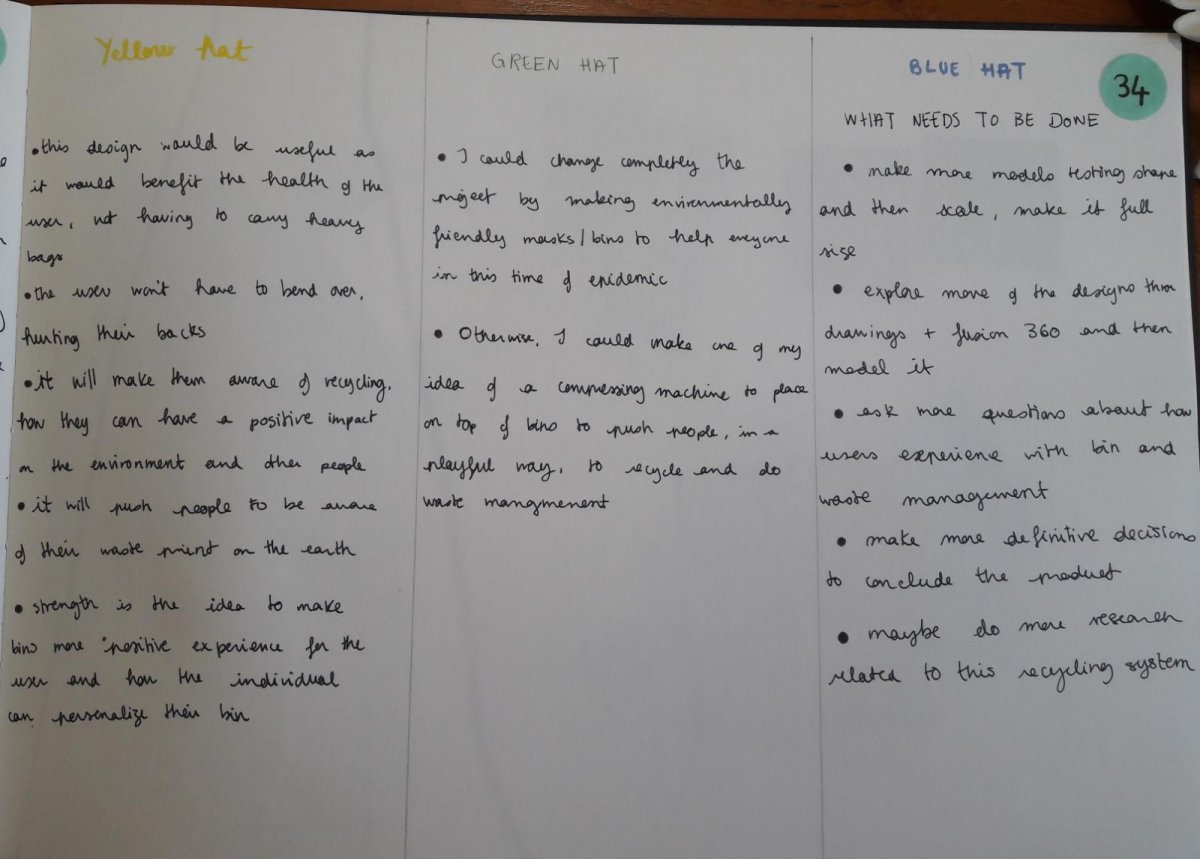 Yellow hat
• this design would be useful as
it would benefit the health of the
user, not having to carry heavy
bags
• the user won't have to bend over,
hurting their backs
• it will make them aware of recycling,
how they can have a positive impact
on the environment and other people
• it will push people to be aware
of their waste print on the earth
• strength is the idea to make
bins more positive experience for the
user and how the individual
can personalize their bin
GREEN HAT
• I could change completely the
project by making environmentally
friendly masks/bins to help everyone
in this time of epidemic
• Otherwise, I could make one of my
idea of a compressing machine to place
on top of bins to push people, in a
playful way, to recycle and do
waste mangmenent
BLUE HAT
34
WHAT NEEDS TO BE DONE
• make more models testing shape
and then scale, make it full
size
• explore more of the designs throu
drawings + fusion 360 and then
model it
• ask more questions about how
users experience with bin and
waste management
• make more definitive decisions
to conclude the product
• maybe do more research
related to this recycling system